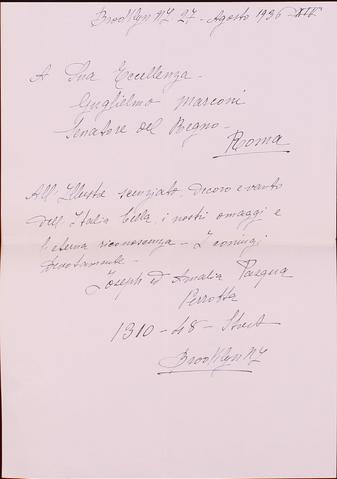 Brooklyn NY. 27 - Agosto 1936 - XIV
A Sua Eccellenza -
Guglielmo Marconi
Senatore del Regno -
Roma
All'Illustre scienziato, decoro e vanto
dell'Italia bella, i nostri omaggi e
l'eterna riconoscenza - I coniugi
devotamente -
Joseph ed Amalia Pasqua
Perrotta
1310 - 48 - Street
Brooklyn NY